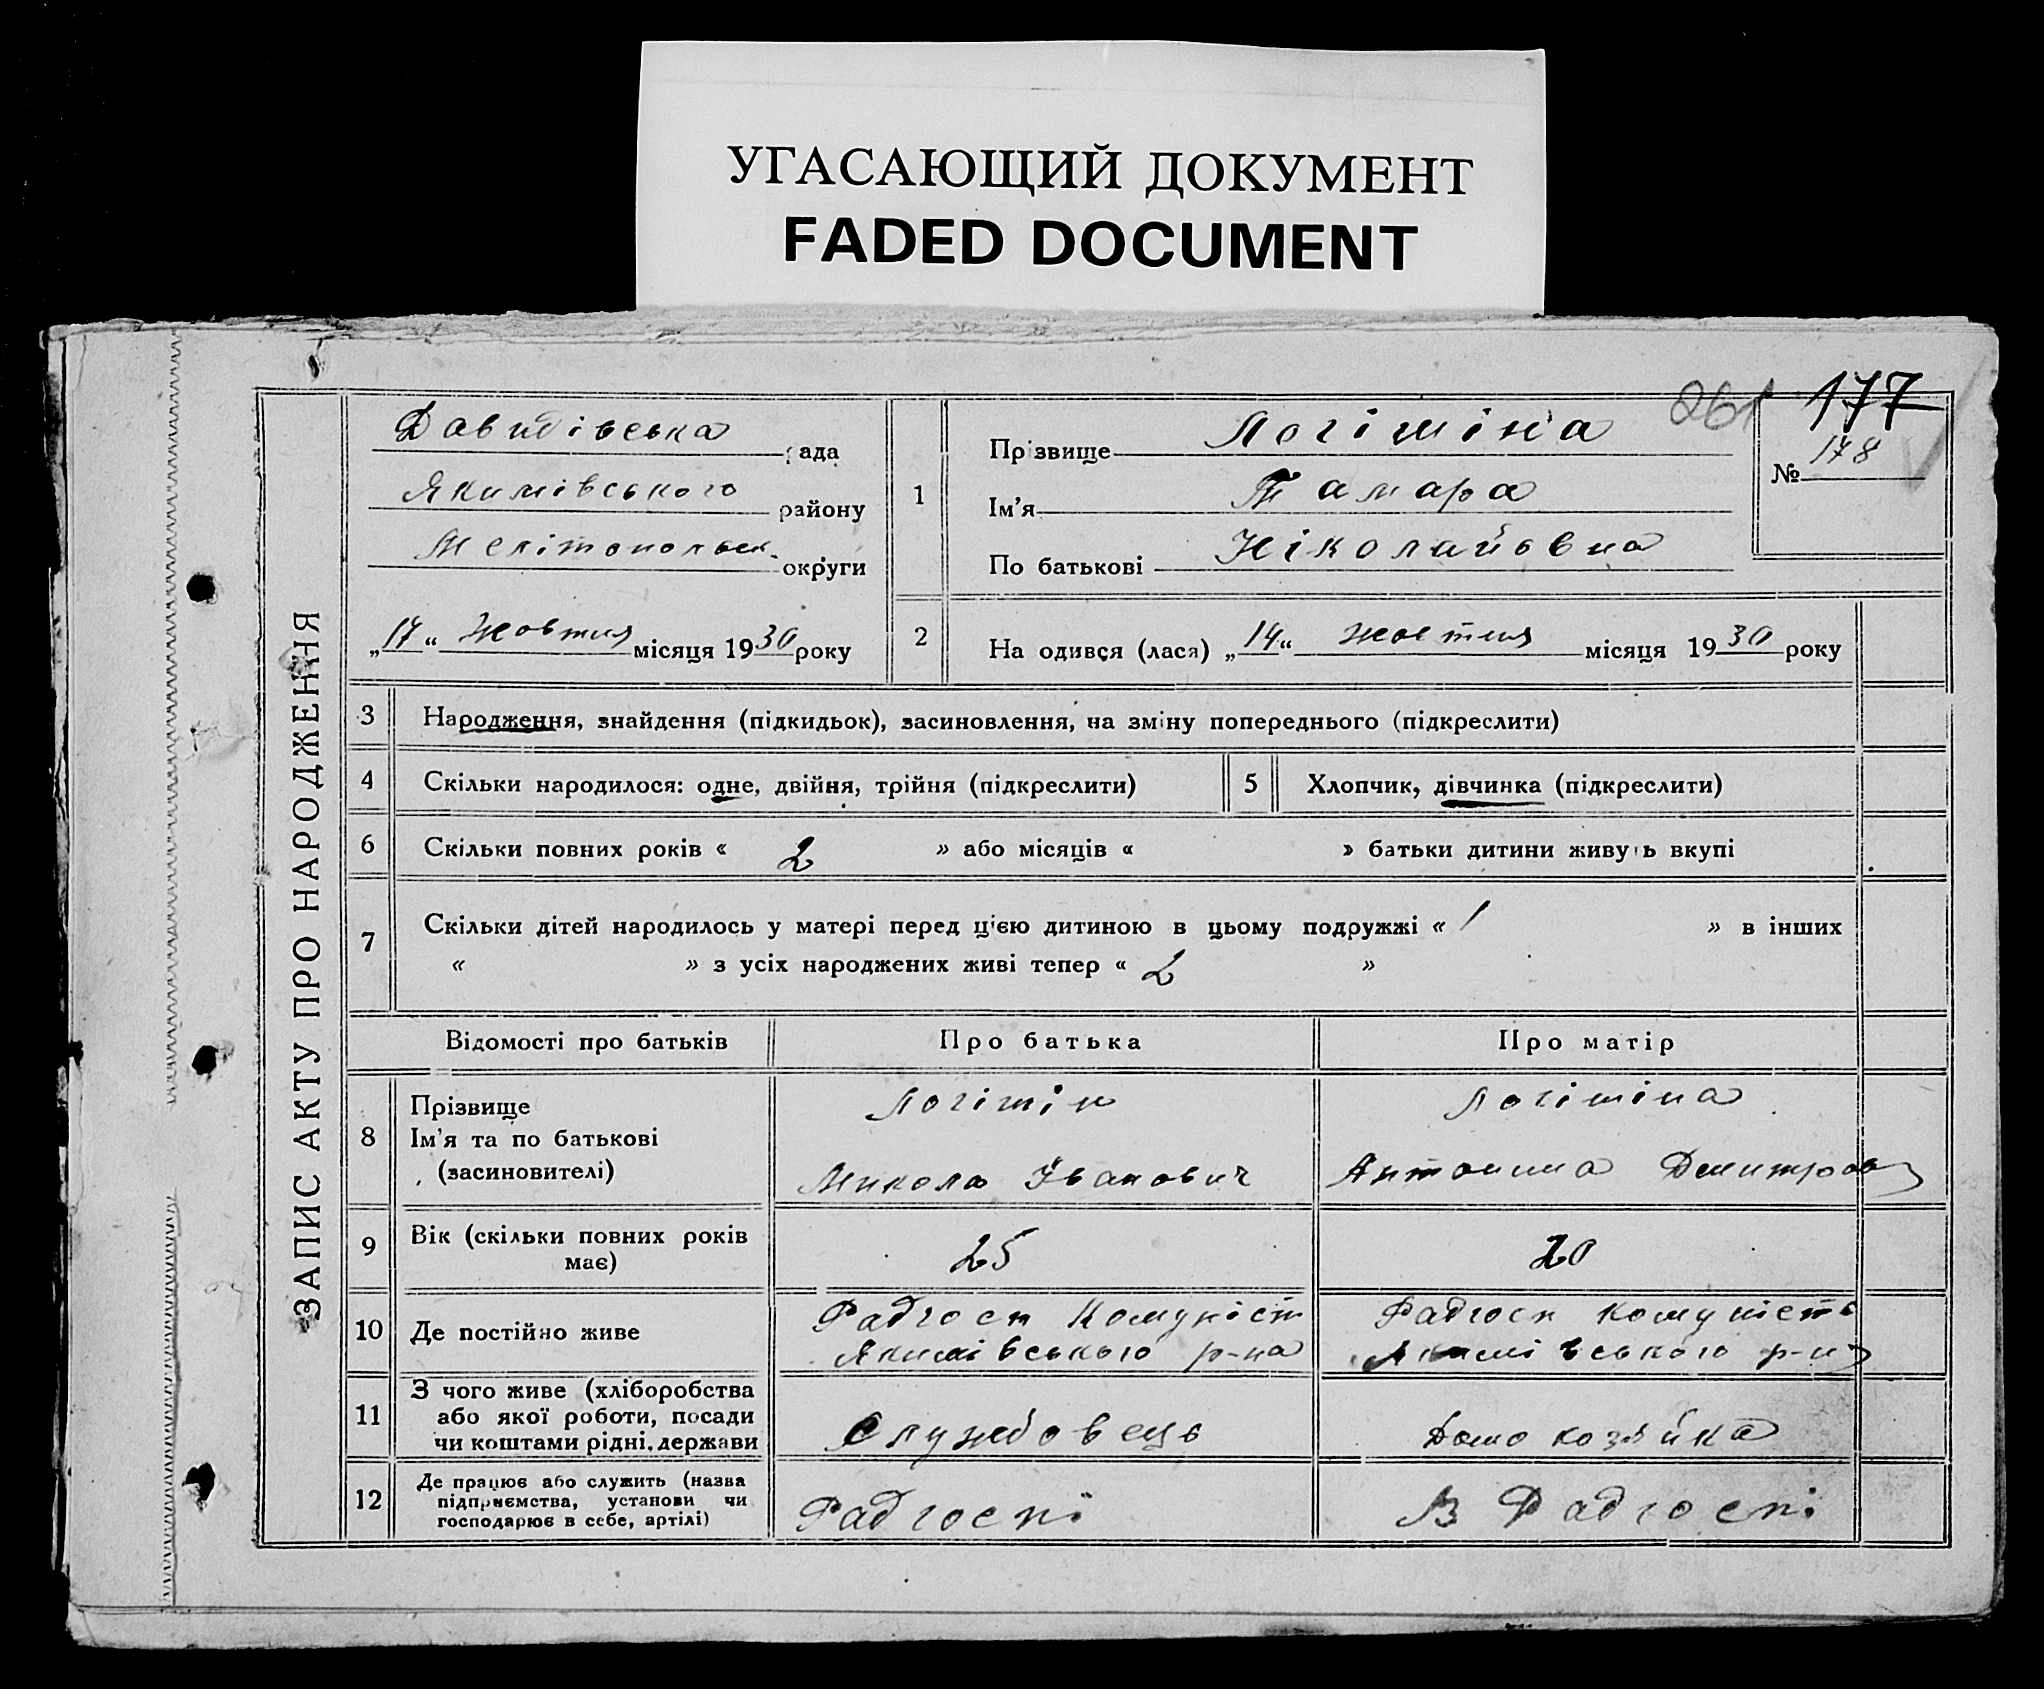 УГАСАЮЩИЙ ДОКУМЕНТ
FADED DOCUMENT
ЗАПИС АКТУ ПРО НАРОДЖЕННЯ
Давидівська рада
Якимівського району
Мелітопольськ. округи
„17“ Жовтня місяця 1930 року
261 177
№ 178
1
Прізвище Логіміна
Ім'я Тамара
По батькові Ніколайовна
2
На одився (лася) „14“ жовтня місяця 1930 року
3 Народження, знайдення (підкидьок), засиновлення, на зміну попереднього (підкреслити)
4 Скільки народилося: одне, двійня, трійня (підкреслити) 5 Хлопчик, дівчинка (підкреслити)
6 Скільки повних років « 2 » або місяців « » батьки дитини живуть вкупі
7 Скільки дітей народилось у матері перед цією дитиною в цьому подружжі « 1 » в інших
« » з усіх народжених живі тепер « 2 »
Відомості про батьків Про батька Про матір
8 Прізвище
Ім'я та по батькові
(засиновителі)
Логімін
Микола Іванович
Логіміна
Антонина Дмитров
9 Вік (скільки повних років
має)
25 20
10 Де постійно живе
Радгосп Комуніст
Якимівського р-на
Радгосп комуність
Якимівського р-н
11 З чого живе (хліборобства
або якої роботи, посади
чи коштами рідні, держави
Службовець Домо козяйка
12 Де працює або служить (назва
підприємства, установи чи
господарює в себе, артілі)
Радгоспі В Радгоспі